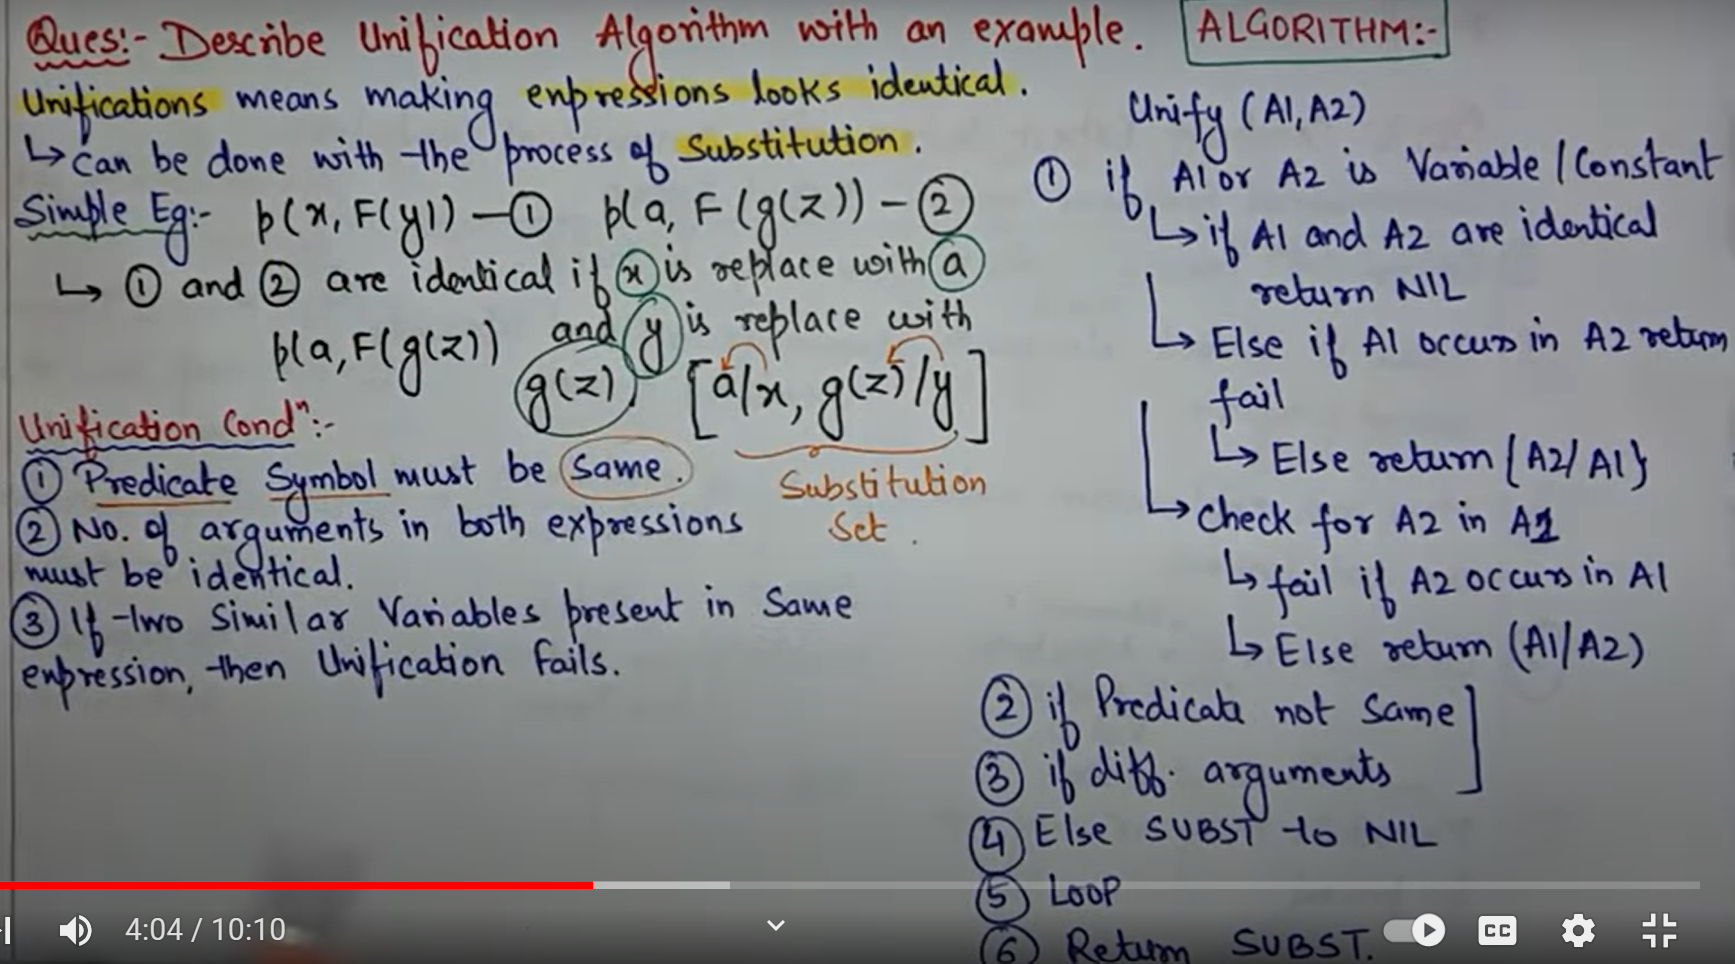 Ques:- Describe Unification Algorithm with an example.
Unifications means making expressions looks identical.
↳ Can be done with the process of Substitution.
Simple Eg:- p(x, F(y)) - ① p(a, F(g(z)) - ②
↳ ① and ② are identical if x is replace with a
and y is replace with
p(a, F(g(z)) g(z). [a/x, g(z)/y]
Substitution
Set.
Unification Condⁿ:-
① Predicate Symbol must be Same.
② No. of arguments in both expressions
must be identical.
③ If two Similar Variables present in Same
expression, then Unification Fails.
ALGORITHM:-
Unify (A1, A2)
① if A1 or A2 is Variable / Constant
↳ if A1 and A2 are identical
return NIL
↳ Else if A1 occurs in A2 return
fail
↳ Else return {A2/A1}
↳ Check for A2 in A1
↳ fail if A2 occurs in A1
↳ Else return (A1/A2)
② if Predicate not Same
③ if diff. arguments
④ Else SUBST to NIL
⑤ Loop
⑥ Return SUBST.
4:04 / 10:10
CC